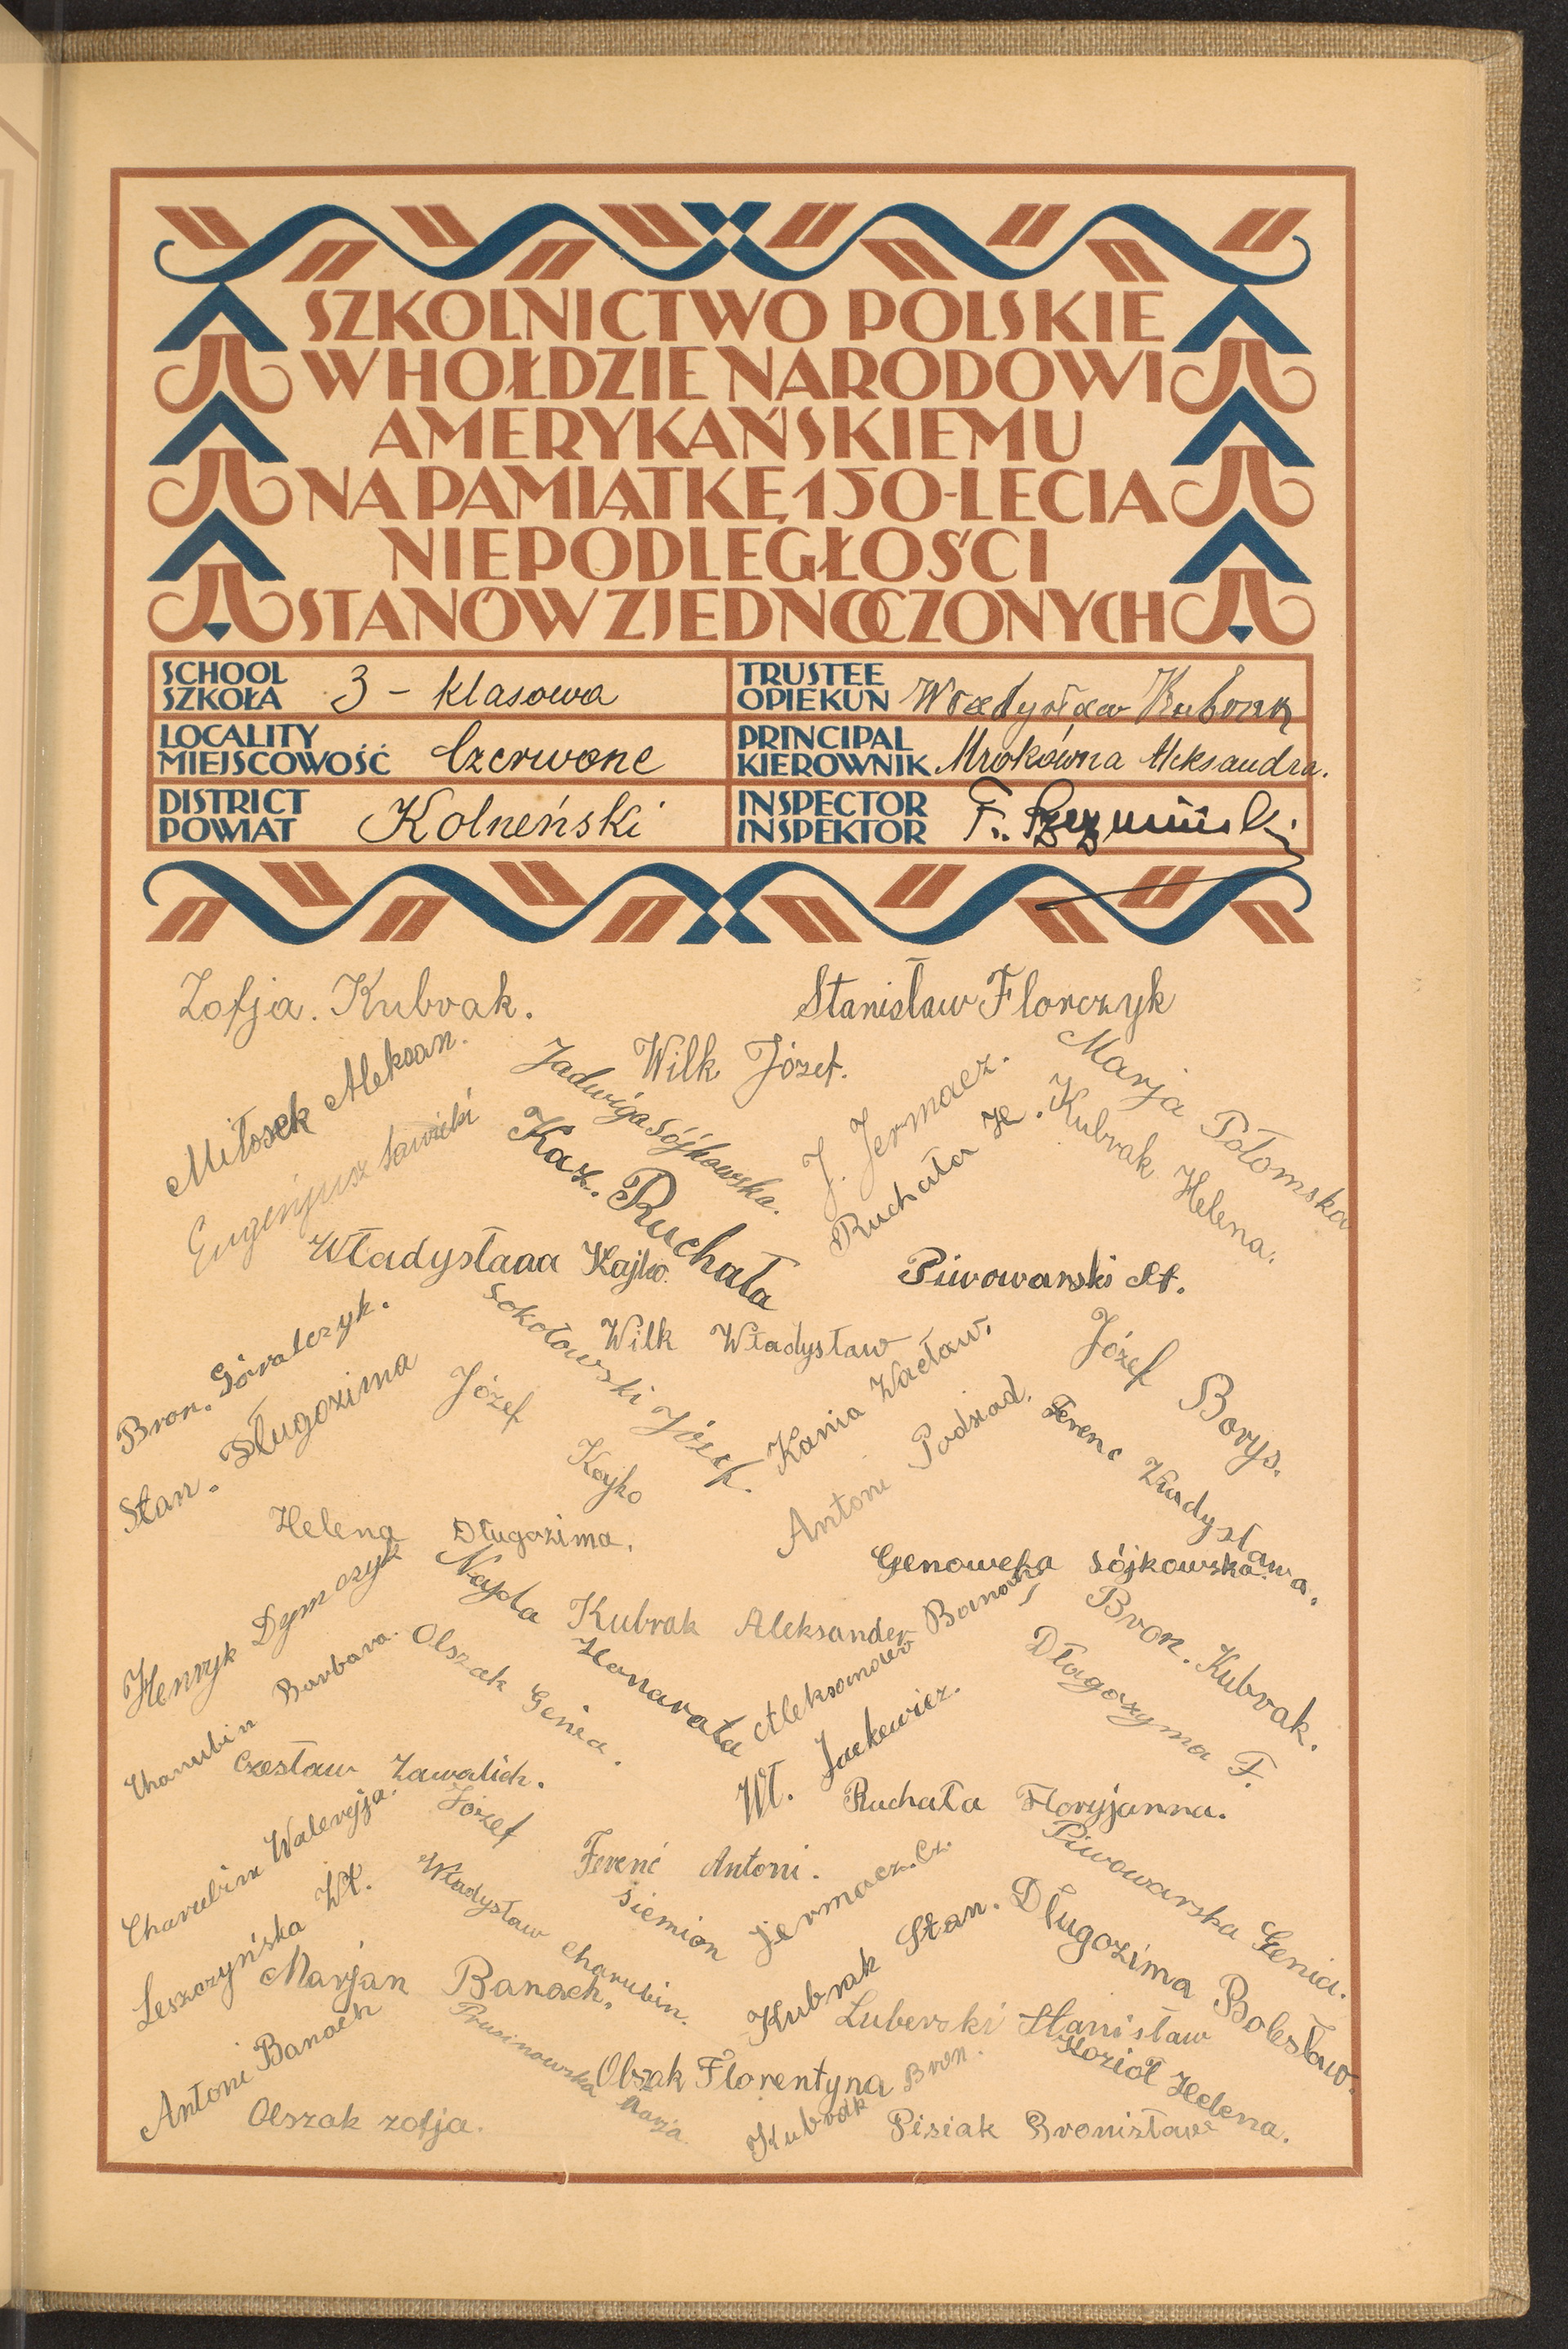 SZKOLNICTWO POLSKIE
W HOŁDZIE NARODOWI
AMERYKAŃSKIEMU
NA PAMIĄTKĘ 150-LECIA
NIEPODLEGŁOŚCI
STANÓW ZJEDNOCZONYCH
SCHOOL
SZKOŁA 3 - klasowa
TRUSTEE
OPIEKUN Władysław Kubrak
LOCALITY
MIEJSCOWOŚĆ Czerwone
PRINCIPAL
KIEROWNIK Mrokówna Aleksandra.
DISTRICT
POWIAT Kolneński
INSPECTOR
INSPEKTOR F.
Zofja. Kubrak.
Stanisław Florczyk
Miłosek Aleksan.
Wilk Józef.
Jadwiga Sójkowska.
J. Jermacz.
Marja Połomska
Eugenjusz Sawicki
Kaz. Ruchała
Ruchała H.
Kubrak Helena.
Władysłaaa Kajko.
Piwowarski St.
Bron. Góralczyk.
Sokołowski Józef.
Wilk Władysław
Józef Borys.
Stan. Długozima
Józef Kajko
Kania Wacław.
Antoni Podsiad.
Ferenc Władysława.
Helena Długozima.
Genowefa Sójkowska.
Henryk Dymczyk
Najda Honarata
Kubrak Aleksander
Aleksander Banach
Bron. Kubrak.
Charubin Barbara.
Olszak Genia.
Długozyma F.
Czesław Zawalich.
Wł. Jackewicz.
Ruchała Floryjanna.
Charubin Waleryja.
Józef Siemion
Ferenc Antoni.
Jermacz. Cz.
Piwowarska Genia.
Leszczyńska Wł.
Władysław Charubin.
Kubrak Stan.
Długozima Bolesław.
Marjan Banach.
Luberski Stanisław
Antoni Banach
Prusinowska Marja
Olszak Florentyna
Kubrak Bron.
Kozioł Helena.
Olszak zofja.
Pisiak Bronisław